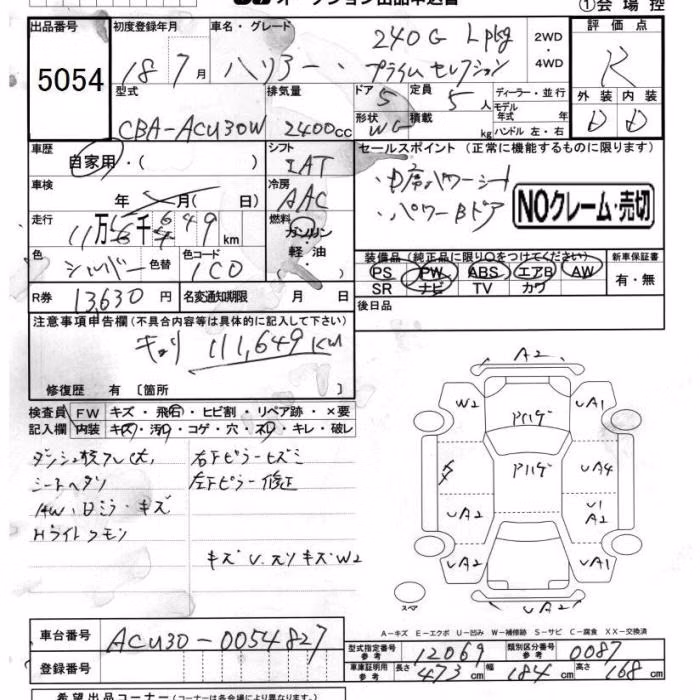 オークション出品申込書
①会場控
出品番号 5054
初度登録年月 18 7月
車名・グレード ハリアー 240G Lpkg プライムセレクション
2WD ・ 4WD
評価点 R
外装 D 内装 D
型式 CBA-ACU30W
排気量 2400cc
ドア 5 定員 5人
形状 WG 積載 kg
ディーラー・並行
モデル年式 年式
ハンドル 左・右
車歴 自家用・( )
シフト IAT
セールスポイント (正常に機能するものに限ります)
車検 年 月( 日)
冷房 AAC
・P席パワーシート
・パワーBドア
NOクレーム・売切
走行 11万 千649km
燃料 ガソリン・軽油 ( )
色 シルバー 色替 色コード 1C0
装備品 (純正品に限り○をつけてください)
新車保証書 有・無
PS PW ABS エアB AW
SR ナビ TV カワ
R券 13,630円
名変通知期限 月 日
後日品
注意事項申告欄(不具合内容等は具体的に記入して下さい)
キョリ 111,649Km
修復歴 有 〔箇所
検査員記入欄
FW キズ・飛石・ヒビ割・リペア跡・×要
内装 キズ・汚レ・コゲ・穴・スレ・キレ・破レ
シートヘタリ
AW、ドミラーキズ
Hライトクモリ
右Fピラーヒズミ
左Fピラー修正
A2
W2
UA1
UA4
UA2
U1
A2
UA2
UA1
UA2
スペア
A-キズ E-エクボ U-凹み W-補修跡 S-サビ C-腐食 XX-交換済
車台番号 ACU30-0054827
型式指定番号 参考 12069
類別区分番号 参考 0087
登録番号
車庫証明用 参考 長さ 473cm 幅 184cm 高さ 168cm
希望出品コーナー (コーナーは各会場により異なります。)